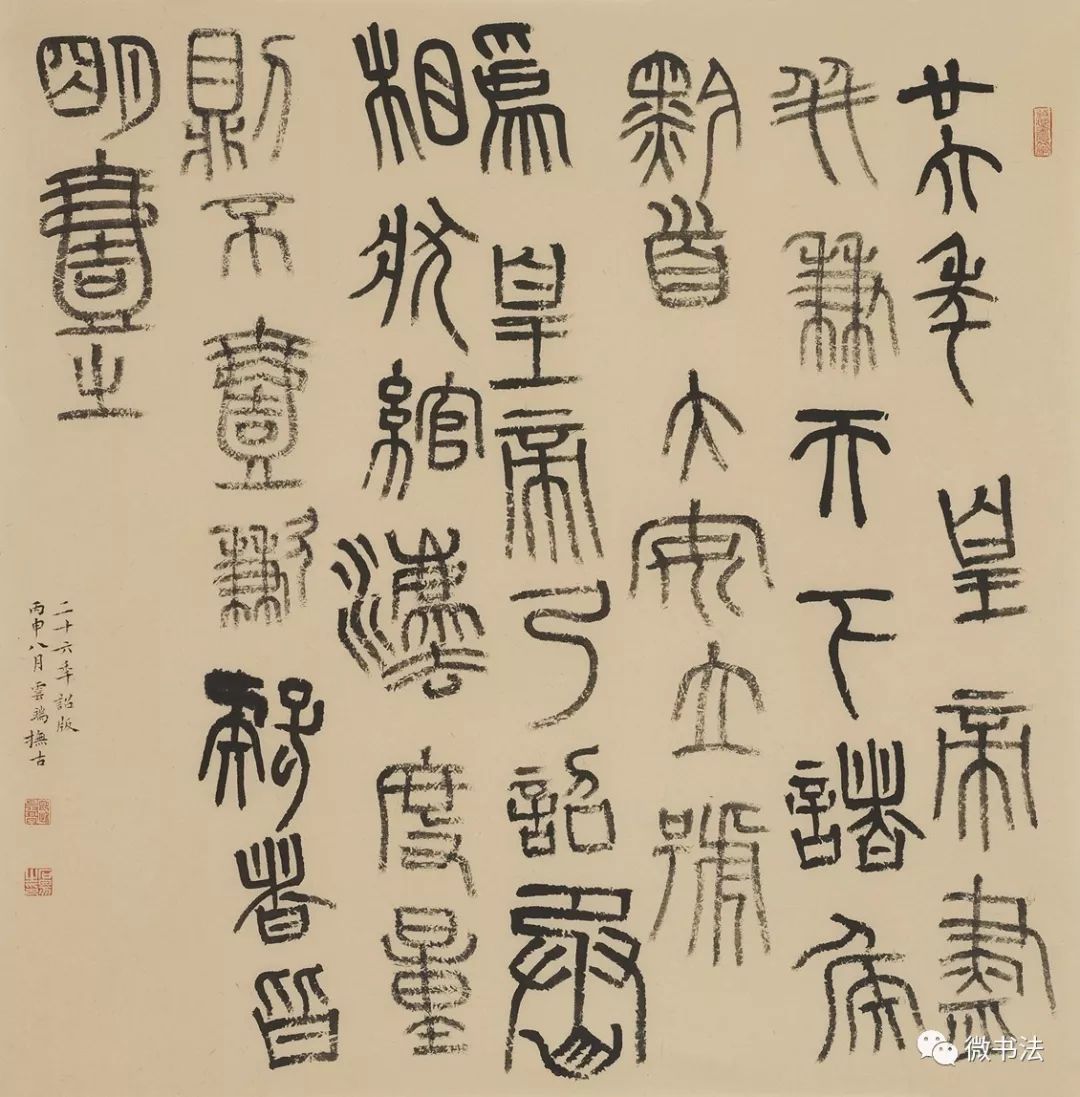 廿六年皇帝盡
并兼天下諸侯
黔首大安立號
爲皇帝乃詔丞
相狀綰灋度量
則不壹歉疑者皆
明壹之
二十六年詔版
丙申八月雲瑞撫古
微书法